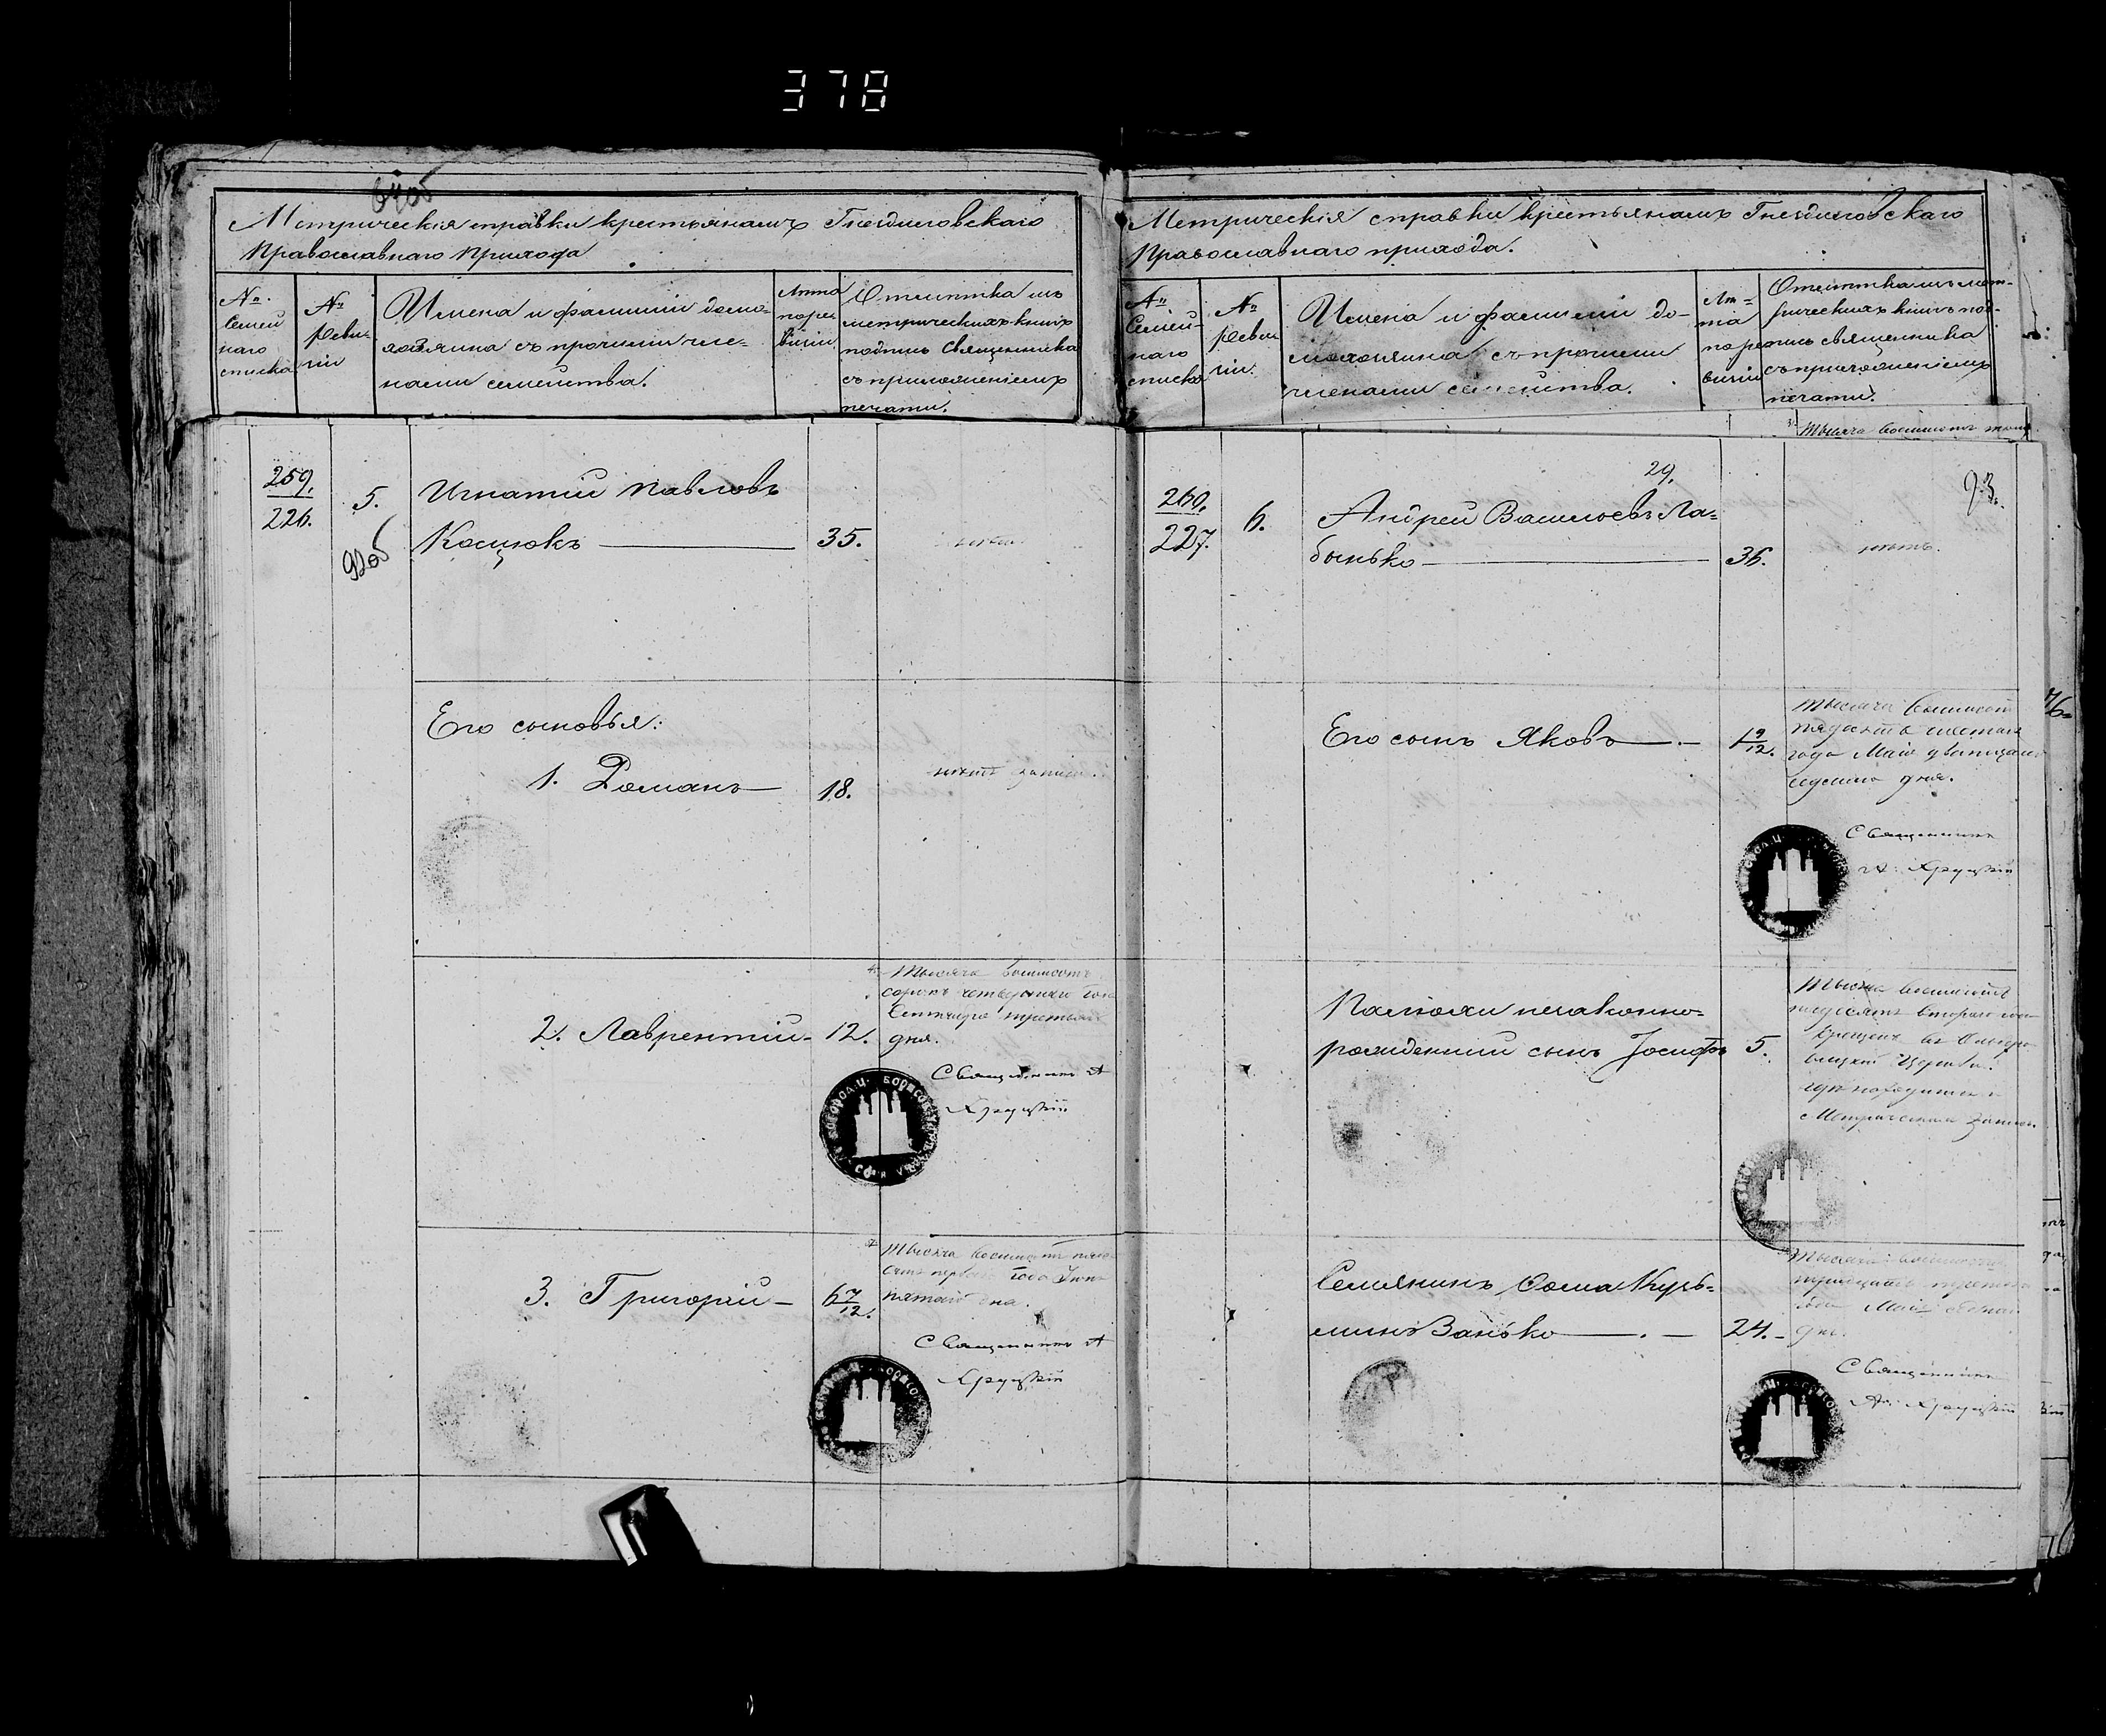 378
Метрическія справки крестьянамъ Гнездиловскаго
Православнаго Прихода
№
Семей
наго
списка
№
Реви-
зіи
Имена и фамиліи домо-
хозяина съ прочими чле-
нами семейства.
Лѣта
по ре-
визіи
Отмѣтка изъ
метрическихъ книгъ
подпись Священника
съ приложеніемъ
печати.
259.
226.
5.
92об
Игнатій Павловъ
Косцюкъ
35.
Его сыновья:
1. Романъ
18.
нѣтъ записи.
2. Лаврентій
12.
Тысяча восемсотъ
сорокъ четвертаго года
Сентября третьяго
дня.
Священникъ А
Хруцкій
3. Григорій
6 7/12.
Тысяча восемсотъ пять-
года Іюня
пятаго дня.
Священникъ А
Хруцкій
Метрическія справки крестьянамъ Гнездиловскаго
Православнаго прихода.
№
Семей-
наго
списка
№
Реви
зіи.
Имена и фамиліи до-
мохозяина съ прочими
членами семейства.
Лѣ-
та
по ре
визіи
Отмѣтка изъ мет-
рическихъ книгъ под-
пись священника
съ приложеніемъ
печати.
Тысяча восемсотъ
29.
93.
260.
227.
6.
Андрей Васильевъ Ла-
бынько
36.
нѣтъ.
Его сынъ Яковъ
1 9/12.
Тысяча восемсотъ
пядесятъ шестаго
года Маія двадцать
седмаго дня.
Священникъ
А. Хруцкій
незаконно-
рожденный сынъ Іосифъ
5.
Тысяча восемсотъ
пядесятъ втораго года
крещенъ въ
Церкви.
гдѣ находится и
Метрическая запись
Семьянинъ Фома Кузь-
минъ Занько
24.
Тысяча восемсотъ
тридцать третьяго
года Маія
дня.
Священникъ
Ан. Хруцкій